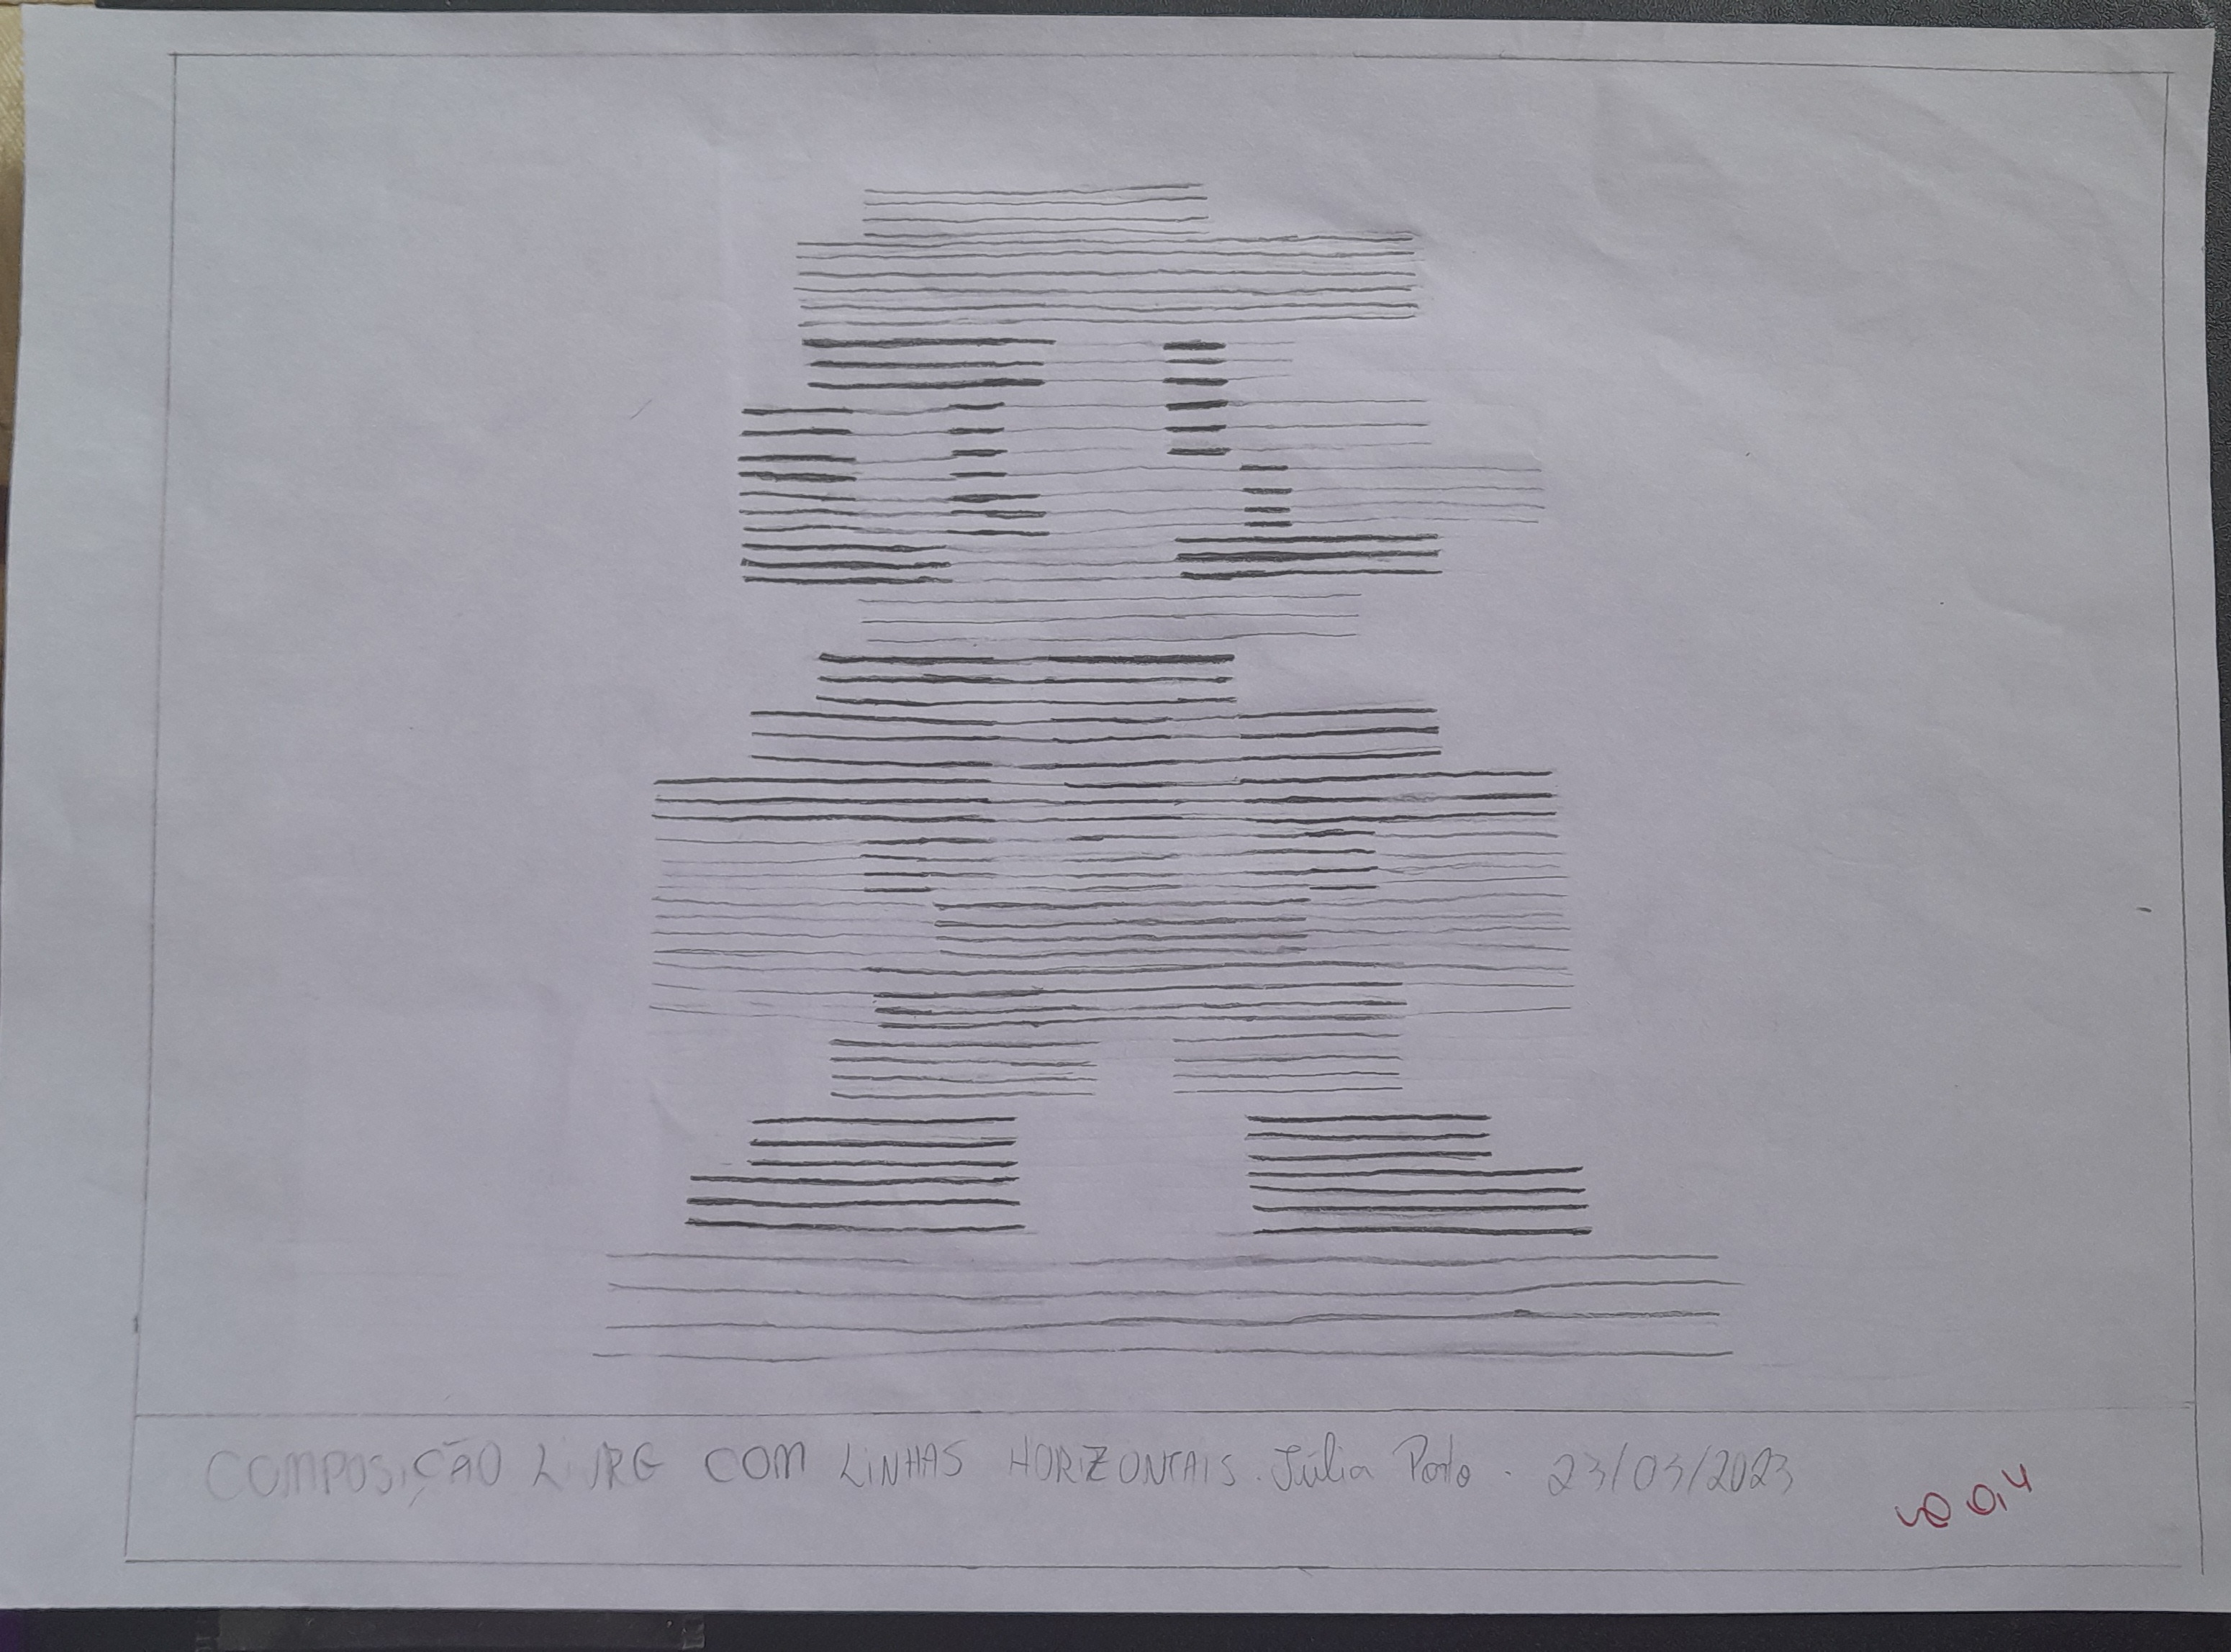 COMPOSIÇÃO LIVRE COM LINHAS HORIZONTAIS. Júlia Porto - 23/03/2023
0,4